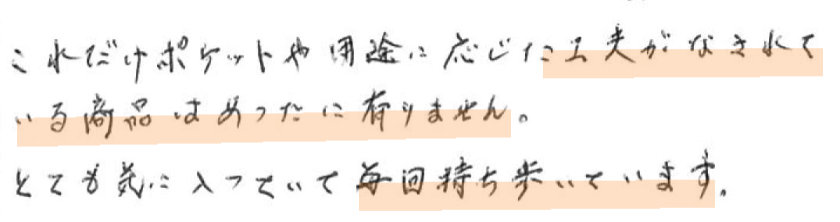 これだけポケットや用途に応じた工夫がなされて
いる商品はめったに有りません。
とても気に入っていて毎回持ち歩いています。